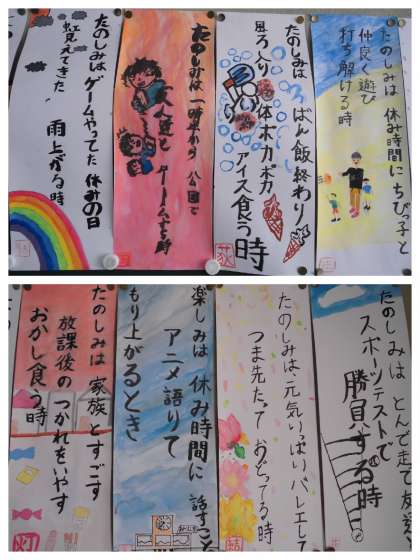 たのしみは 休み時間にちび子と
仲良く遊び
打ち解ける時
たのしみは ばん飯終わり
風ろ入り 体ポカポカ
アイス食う時
荻
たのしみは 一時半から 公園で
友人達と ゲームする時
たのしみは ゲームやってた 休みの日
虹見えてきた 雨上がる時
たのしみは とんで走て友達
スポーツテストで
勝負する時
たのしみは 元気いっぱいバレエして
つま先たって おどってる時
結
楽しみは 休み時間に 話すこと
アニメ語りて
もり上がるとき
たのしみは 家族とすごす
放課後の つかれをいやす
おかし食う時
灯